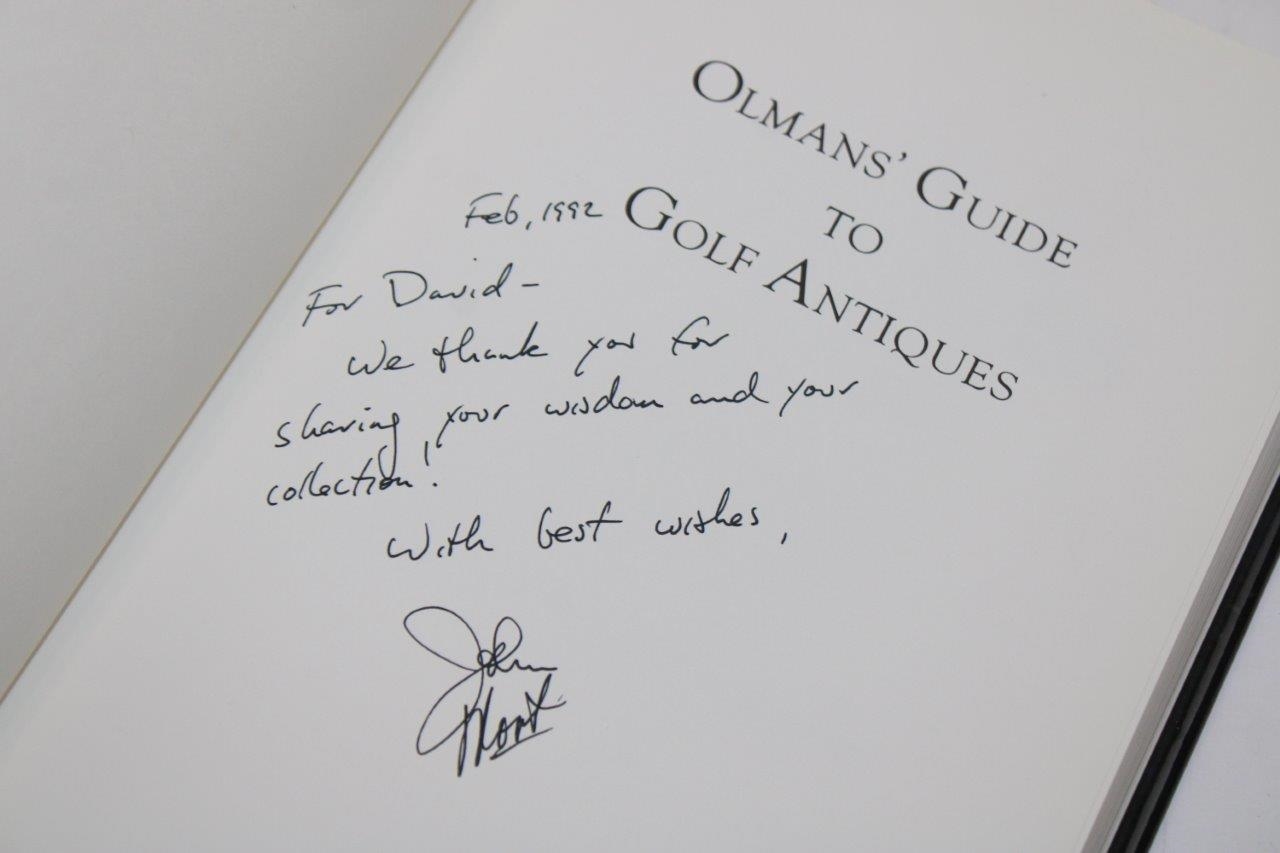 OLMANS' GUIDE
TO
GOLF ANTIQUES
Feb, 1992
For David –
We thank you for
sharing your wisdom and your
collection!
With best wishes,
John
Mort